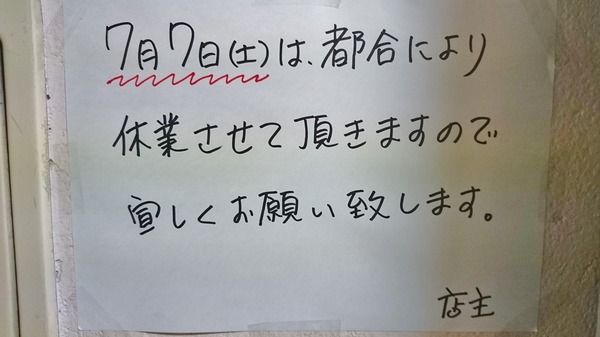 7月7日(土)は、都合により
休業させて頂きますので
宜しくお願い致します。
店主